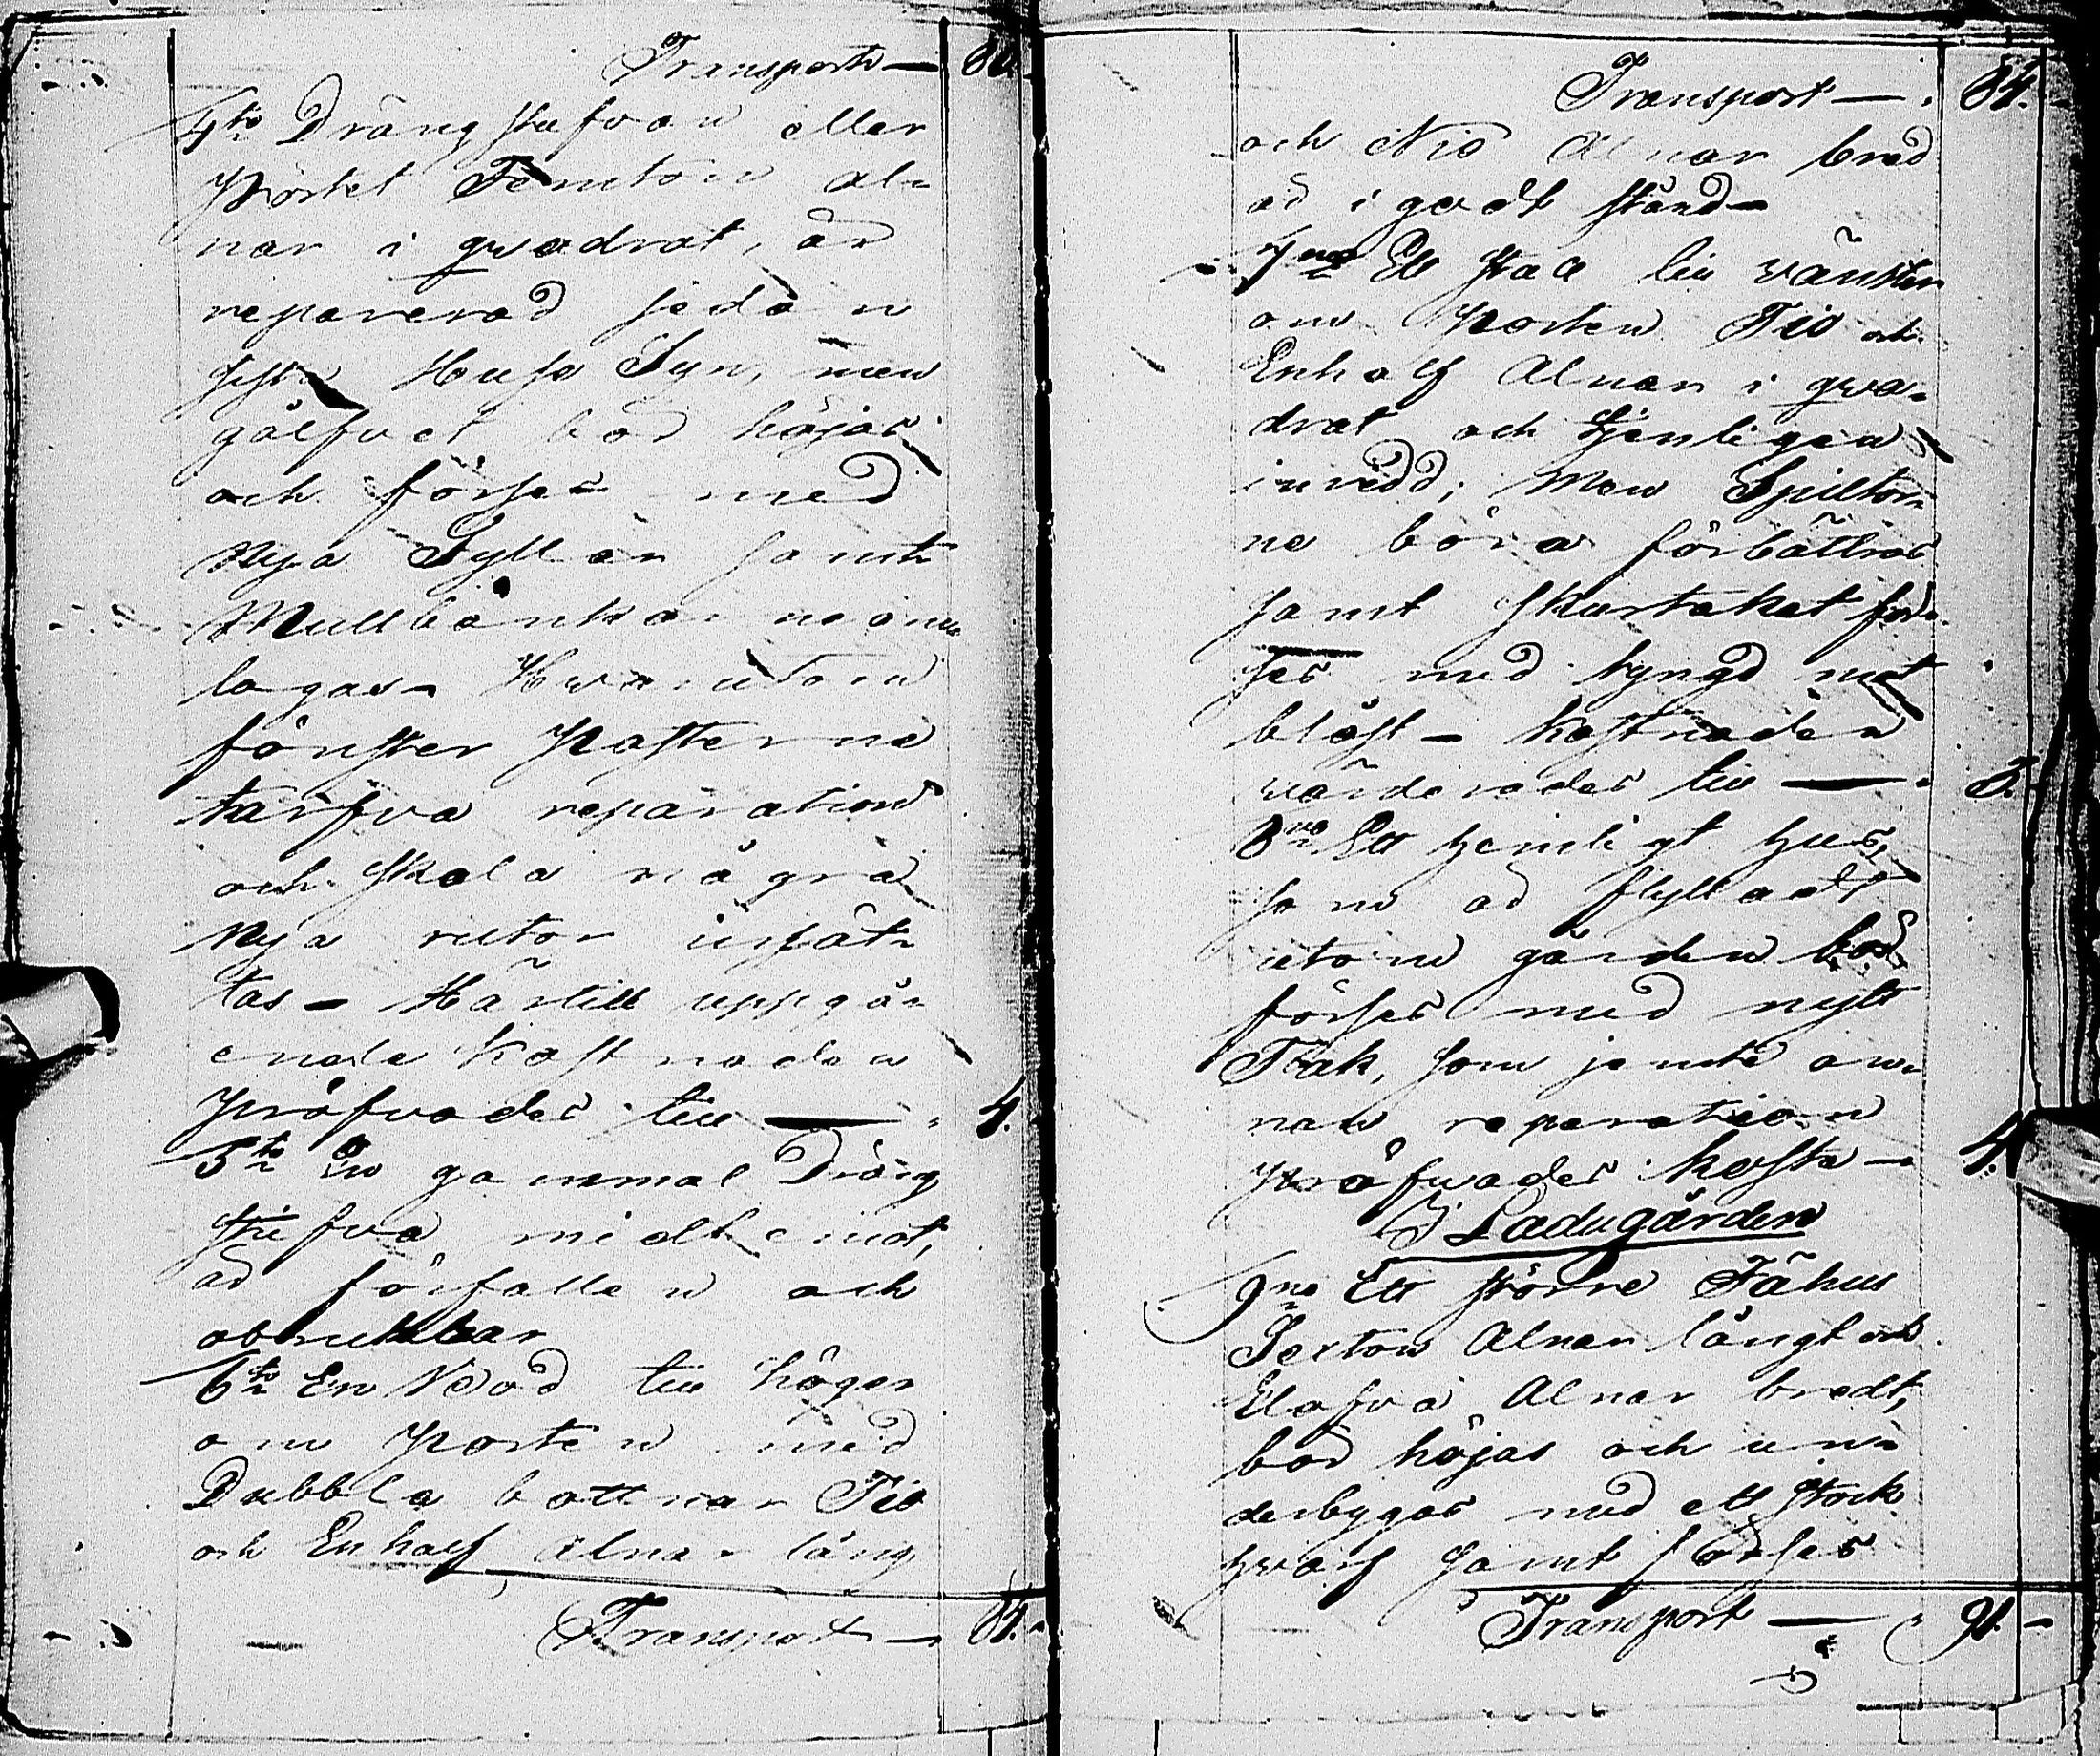 Transport — 80.
4to Drängstufvan eller
Pörtet Femton al-
nar i qvadrat, är
reparerad sedan
sista Husa Syn, men
gålfvet bör höjas
och förses med
Nya Syllar samt
Mullbänkarne om-
lagas – Hvarutom
fönster Posterne
tarfva reparation
och skola några
Nya rutor insät-
tas – Härtill uppgå-
ende Kostnaden
pröfvades till — 4.
5to En gammal Dräng
stufva midt emot,
är förfallen och
obrukbar
6to En Bod till höger
om Porten med
Dubbla bottnar Tio
och Enhalf Alnar lång
Transport — 84.
Transport — 84.
och Nio Alnar bred
är i godt stånd –
7mo Ett Stall till vänster
om Porten Tio och
Enhalf Alnar i qva-
drat och tjenligen
inredd; Men Spiltor-
ne böra förbättras
samt Skurtaket för-
ses med tyngd mot
blåst – Kostnaden
värderades till — 3.
8vo Ett hemligt hus,
som är flyttadt
utom gården bör
förses med nytt
Tak, som jemte an-
nan reparation
pröfvades kosta — 4.
I Ladugården
9no Ett större Fähus
Sexton Alnar långt och
Elofva Alnar bredt,
bör höjas och un-
derbygas med ett stock
hvarf samt förses
Transport — 91. –